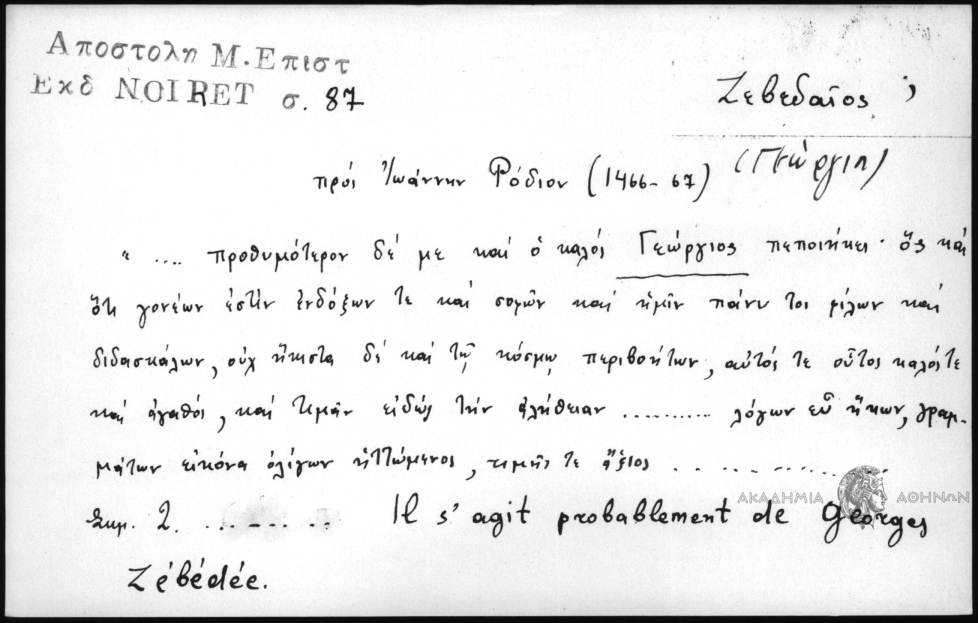 Αποστολη Μ. Επιστ
Εκδ NOIRET σ. 87
Ζεβεδαῖος,
(Γεώργιος)
πρός Ἰωάννην Ρόδιον (1466-67)
" .... προθυμότερον δέ με καί ὁ καλός Γεώργιος πεποίηκει· ὅς καί
ὅτι γονέων ἐστίν ἐνδόξων τε καί σοφῶν καί ἡμῖν πάνυ τοι φίλων καί
διδασκάλων, οὐχ ἥκιστα δέ καί τῷ κόσμῳ περιβοήτων, αὐτός τε οὗτος καλός τε
καί ἀγαθός, καί τιμᾶν εἰδώς τήν ἀλήθειαν .......... λόγων εὖ ἥκων, γραμ-
μάτων εἰκόνα ὀλίγων ἡττώμενος, τιμῆς τε ἄξιος ..........
Σημ. 2. ....... Il s'agit probablement de Georges
Zébédée.
ΑΚΑΔΗΜΙΑ ΑΘΗΝΩΝ